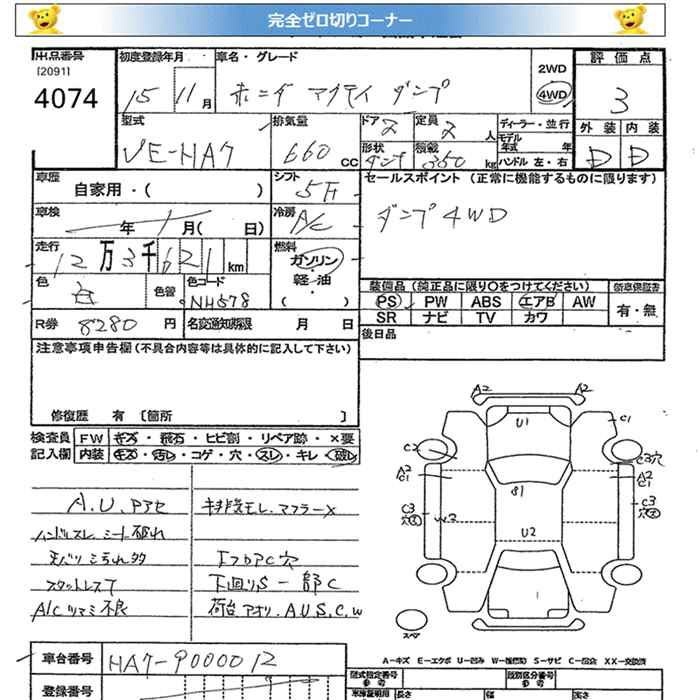 完全ゼロ切りコーナー
出品番号 初度登録年月 車名・グレード 評価点
[2091] 2WD
4074 15 11月 ホンダ アクティ ダンプ 4WD 3
外装 内装
型式 排気量 ドア 2 定員 2 人 ディーラー・並行
モデル年式 年
VE-HA7 660 CC 形状 ダンプ 積載 350 kg ハンドル 左・右 D D
車歴 自家用・( ) シフト 5F セールスポイント (正常に機能するものに限ります)
車検 年 月( 日) 冷房 A/C ダンプ4WD
走行 12万3千621km 燃料 ガソリン・軽油・( )
色 白 色替 色コード NH578 装備品 (純正品に限り○をつけてください) 新車保証書
PS PW ABS エアB AW 有・無
SR ナビ TV カワ
R券 8280 円 名変通知期限 月 日 後日品
注意事項申告欄(不具合内容等は具体的に記入して下さい)
修復歴 有 〔箇所 〕
検査員 FW キズ・飛石・ヒビ割・リペア跡・×要
記入欄 内装 キズ・汚レ・コゲ・穴・スレ・キレ・破レ
A2 A2
U1 C1
C2 C3穴
A2 C1 A2 C1
C3 穴 W2 S1 C3 穴
U2
1
スペア
A.U.Pアセ キ排気モレ.マフラーX
ハンドルスレ シート破れ
天バリ汚れ多 エプロンC穴
スタットレスT 下廻りS一部C
A/Cツマミ不良 荷台アオリ.A.U.S.C.W
A-キズ E-エクボ U-凹み W-補修跡 S-サビ C-腐食 XX-交換済
車台番号 HA7-9000012
型式指定番号 類別区分番号
参考 参考
登録番号 車庫証明用 長さ 幅 高さ